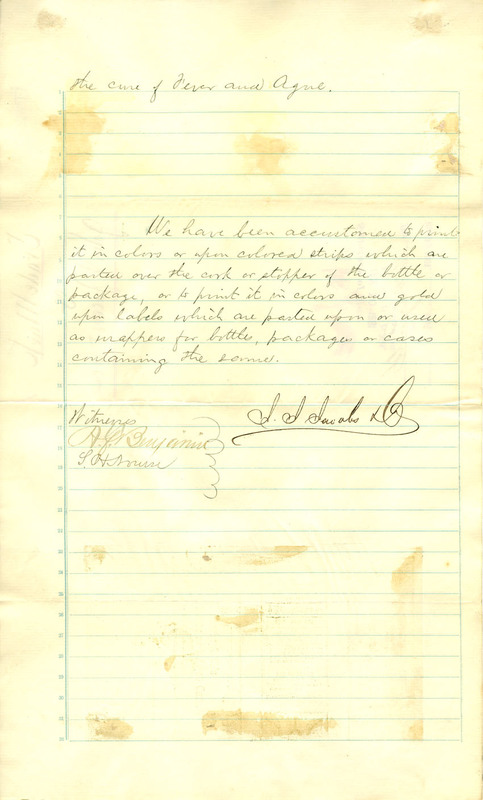 the cure of Fever and Ague.
We have been accustomed to print
it in colors or upon colored strips which are
pasted over the cork or stopper of the bottle or
package, or to print it in colors and gold
upon labels which are pasted upon or used
as wrappers for bottles, packages or cases
containing the same.
Witnesses
J. J. Jacobs & Co
Benjamin
S. H.